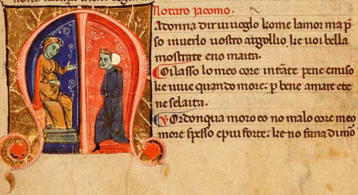 Notaro jacomo.
adonna dir uiuoglo kome lamor ma p
so inuerlo uostro argollio ke uoi bella
mostrate eno maita.
Oilasso lo meo core intāte pene emiso
ke uiue quando more. p bene amare ete
neselaita.
Ordonqua moro eo no malo core meo
more spesso epiu forte. ke no faria dimo